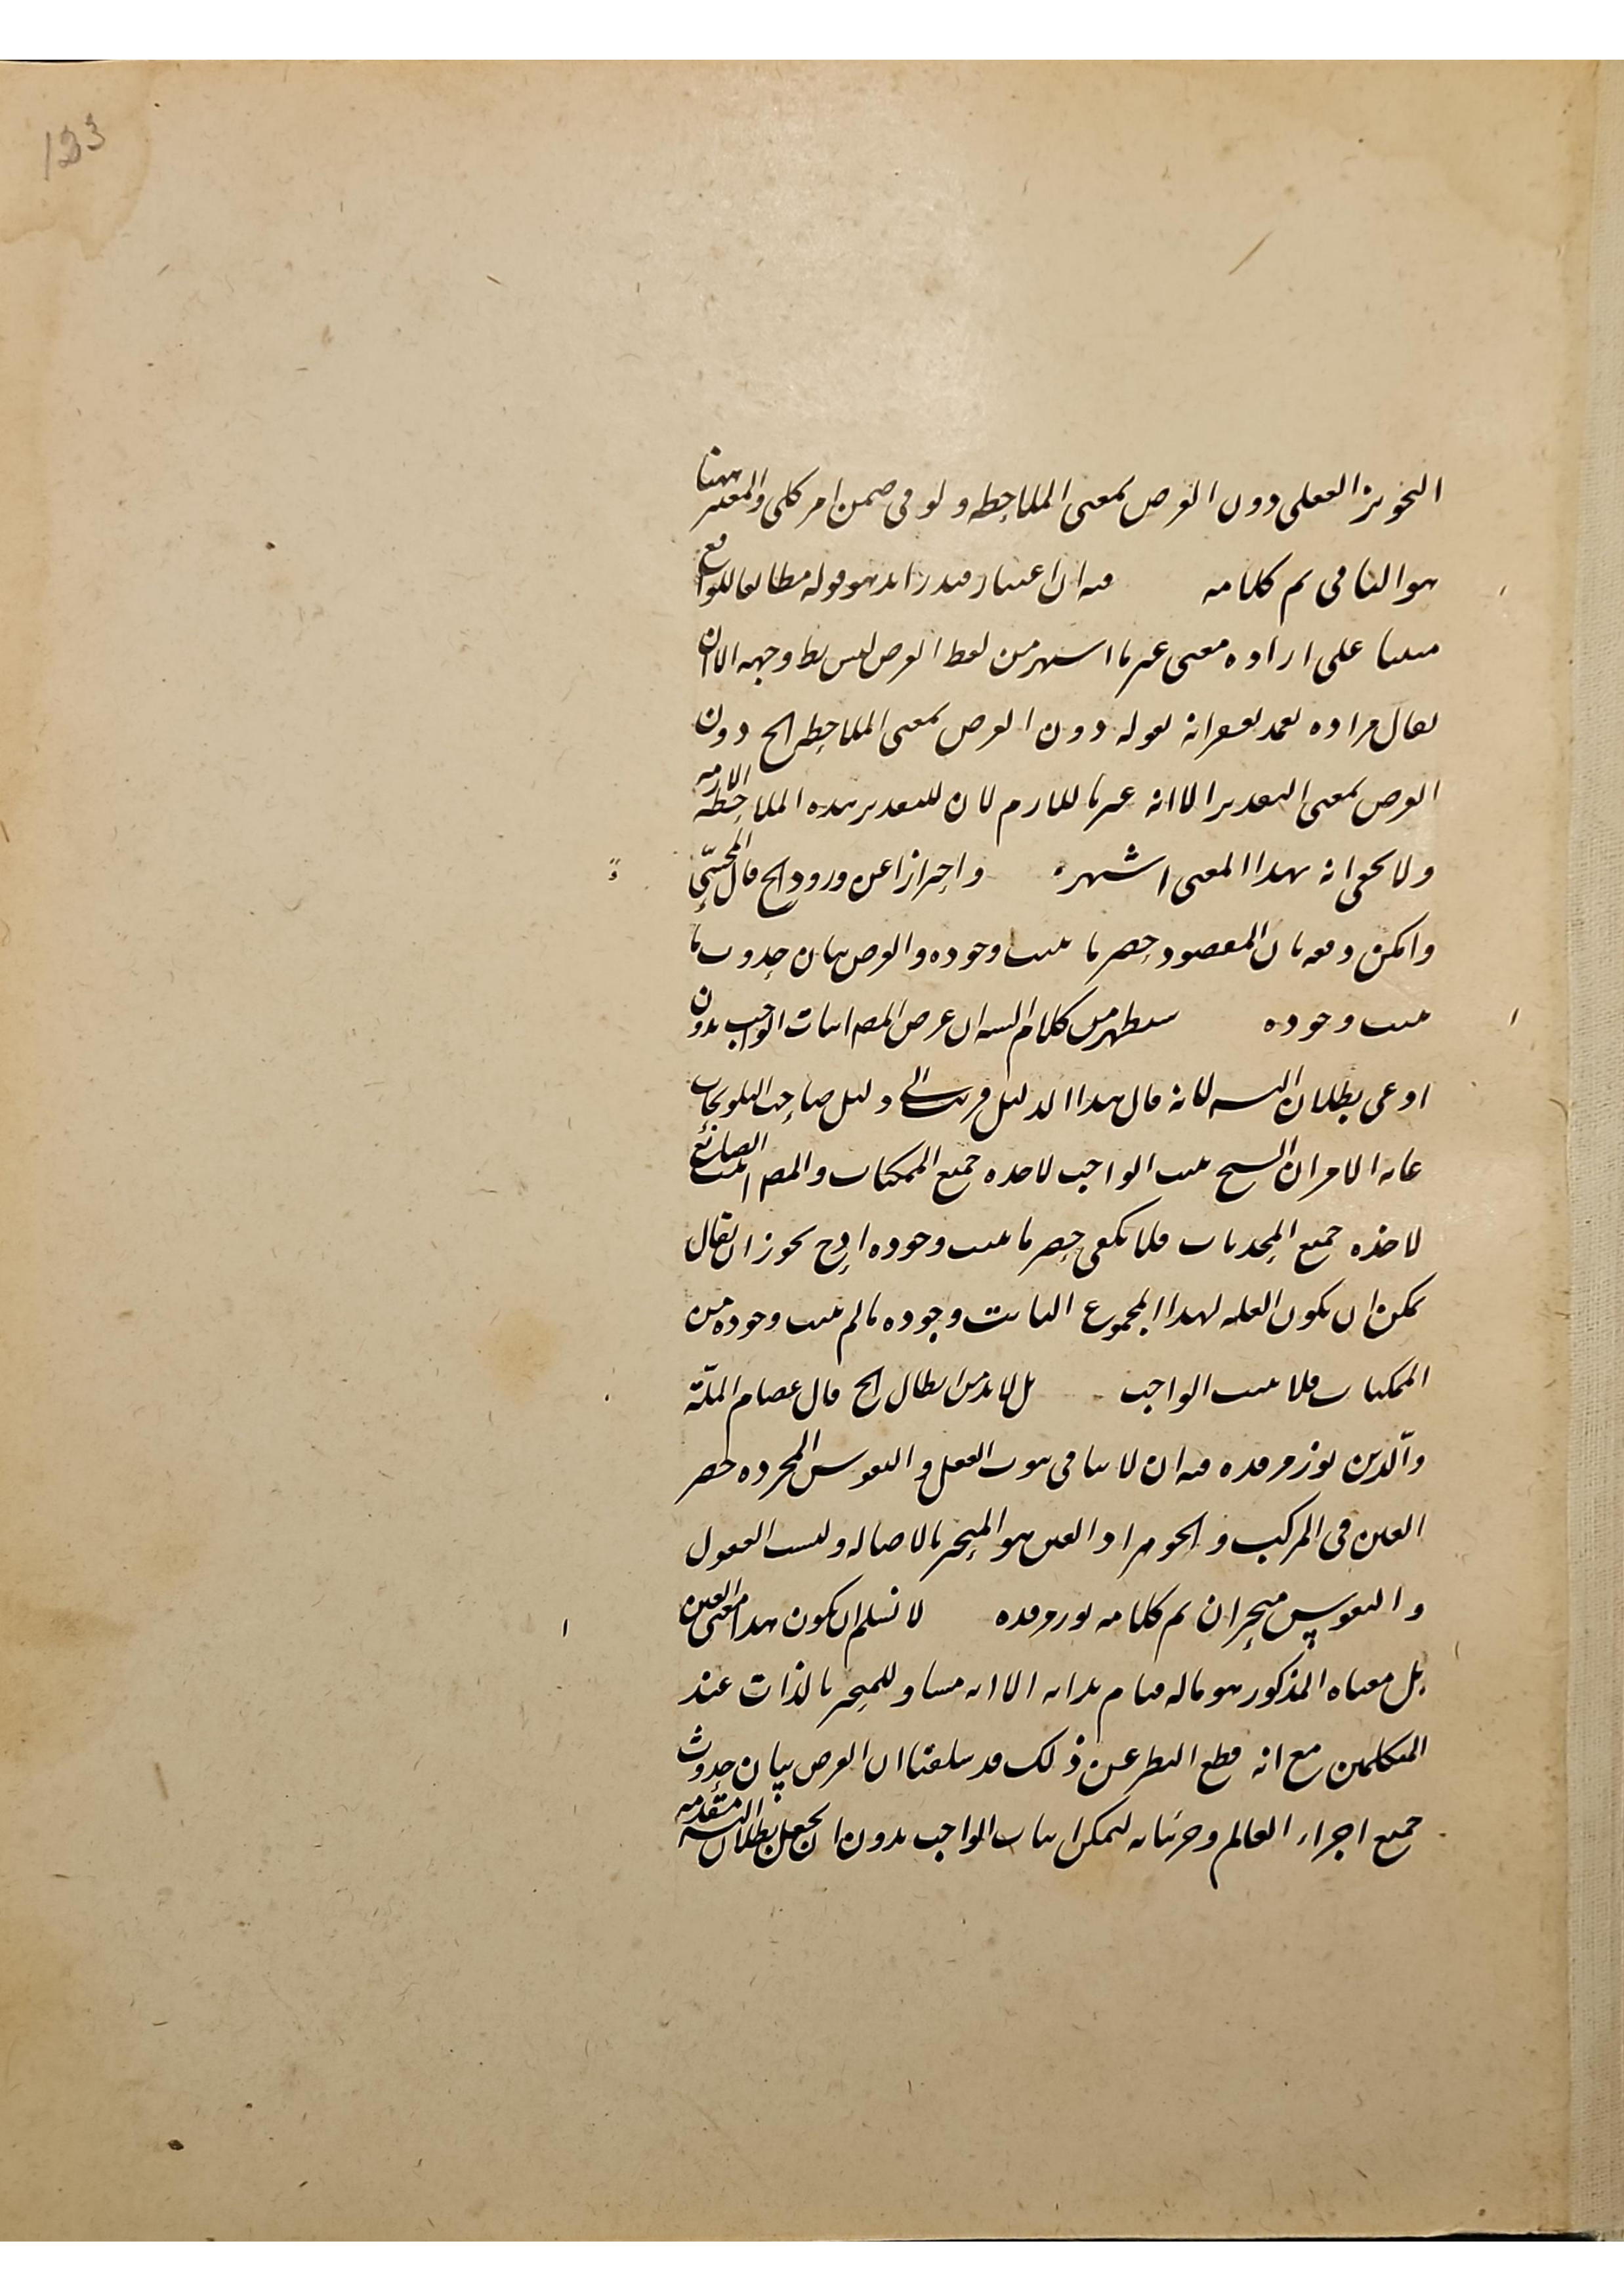 123
التجويز العقلى دون الفرض بمعنى الملاحظه ولو فى ضمن امر كلى والمعتبر ههنا
هو الثانى تم كلامه فيه ان اعتبار قيد زايد هو قوله مطابقا للواقع
مبنيا على اراده معنى غير ما اشتهر من لفظ الفرض ليس يظ وجهه الا ان
يقال مراده بقوله دون الفرض بمعنى الملاحظه الخ دون
الفرض بمعنى التقدير الا انه غير ما للازم لان للتقدير هذه الملاحظه اللازمه
ولا يخفى انه بهذا المعنى اشهر واحترازا عن ورود الخ قال المحشّى
وامكن دفعه بان المقصود حصر ما يثبت وجوده والغرض بيان حدوث ما
يثبت وجوده سيظهر من كلام الشه ان غرض المص اثبات الواجب بدون
ادعى بطلان التسه لانه قال هذا الدليل قريب الى دليل صاحب التلويحات
غايه الامر ان الشيخ يثبت الواجب لاخذه جميع الممكنات والمص يثبت الصانع
لاخذه جميع المحدثات فلا يكفى حصر ما يثبت وجوده اذ ح يجوز ان يقال
يمكن ان يكون العله لهذا المجموع الثابت وجوده ما لم يثبت وجوده من
الممكنات فلا يثبت الواجب بل لا بد من ابطال الخ قال عصام الملّة
والّدين نور مرقده فيه ان لا ينافى ثبوت العقل والنفوس المجرده حصر
العين فى المركب والجوهر اذ العين هو المتحيز بالاصاله وليست العقول
والنفوس متحيزان تم كلامه نور مرقده لا نسلم ان يكون هذا معنى العين
بل معناه المذكور هو ماله قيام بذاته الا انه مساو للمتحيز بالذات عند
المتكلمين مع انه قطع النظر عن ذلك قد سلفنا ان الغرض بيان حدوث
جميع اجزاء العالم وجزئياته ليمكن اثبات الواجب بدون ان يجعل بطلان التسه مقدمه